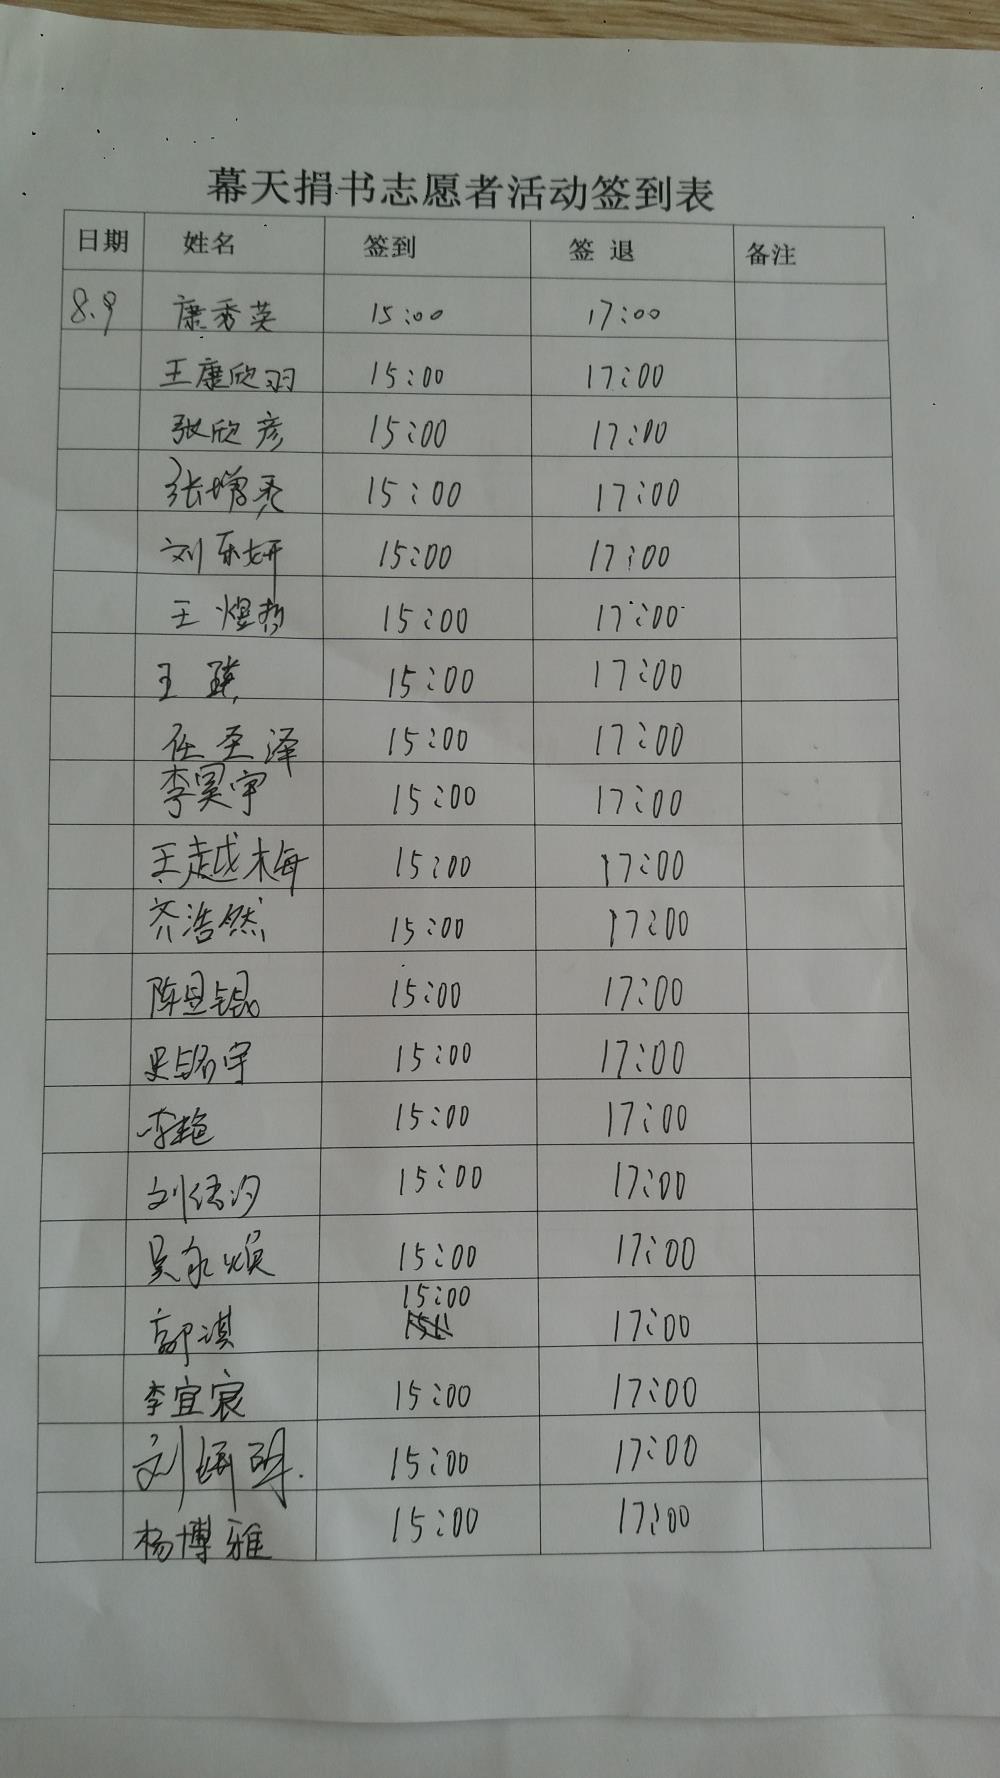 幕天捐书志愿者活动签到表
日期 姓名 签到 签退 备注
8.9 康秀英 15:00 17:00
王康欣羽 15:00 17:00
张欣彦 15:00 17:00
张增秀 15:00 17:00
刘乐妍 15:00 17:00
王煜哲 15:00 17:00
王瑛 15:00 17:00
任圣泽 15:00 17:00
李昊宇 15:00 17:00
王越梅 15:00 17:00
齐浩然 15:00 17:00
陈昱锟 15:00 17:00
史铭宇 15:00 17:00
李艳 15:00 17:00
刘 15:00 17:00
吴永焕 15:00 17:00
15:00
郭淇 17:00
李宜宸 15:00 17:00
刘妍 15:00 17:00
杨博雅 15:00 17:00